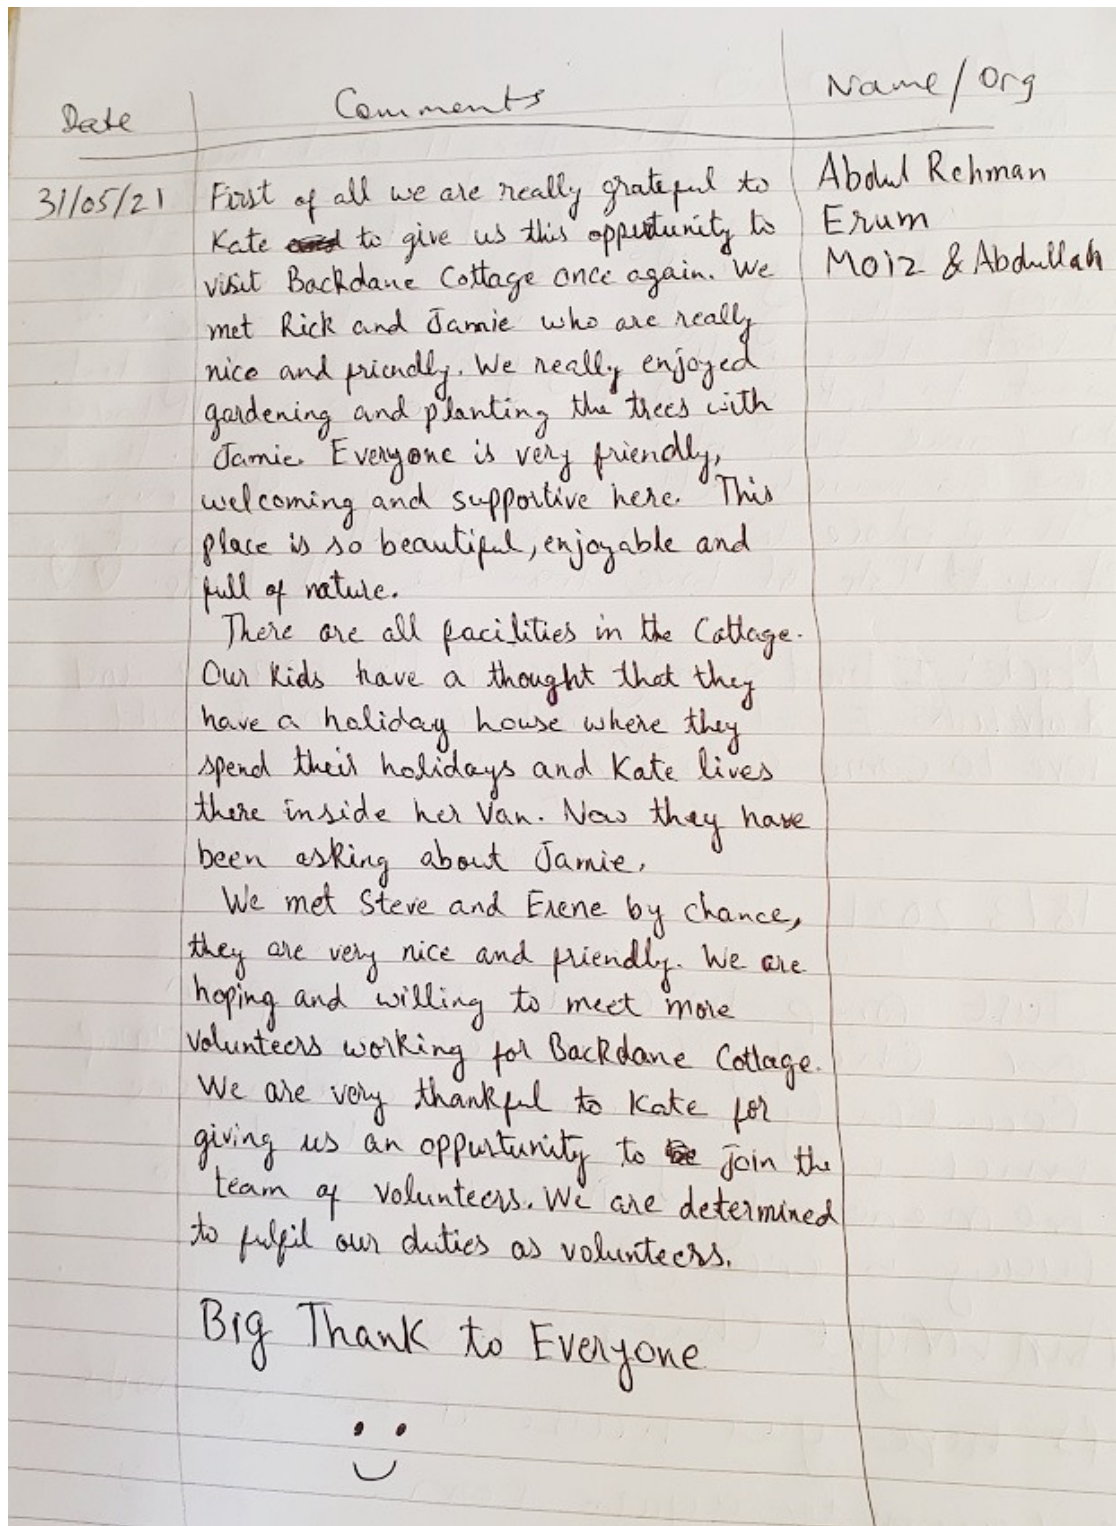 Date Comments Name/Org
31/05/21 First of all we are really grateful to Abdul Rehman
Kate to give us this oppurtunity to Erum
visit Backdane Cottage once again. We Moiz & Abdullah
met Rick and Jamie who are really
nice and friendly. We really enjoyed
gardening and planting the trees with
Jamie. Everyone is very friendly,
welcoming and supportive here. This
place is so beautiful, enjoyable and
full of nature.
There are all facilities in the Cottage.
Our Kids have a thought that they
have a holiday house where they
spend their holidays and Kate lives
there inside her Van. Now they have
been asking about Jamie.
We met Steve and Erene by chance,
they are very nice and friendly. We are
hoping and willing to meet more
volunteers working for Backdane Cottage.
We are very thankful to Kate for
giving us an oppurtunity to be join the
team of volunteers. We are determined
to fulfil our duties as volunteers.
Big Thank to Everyone